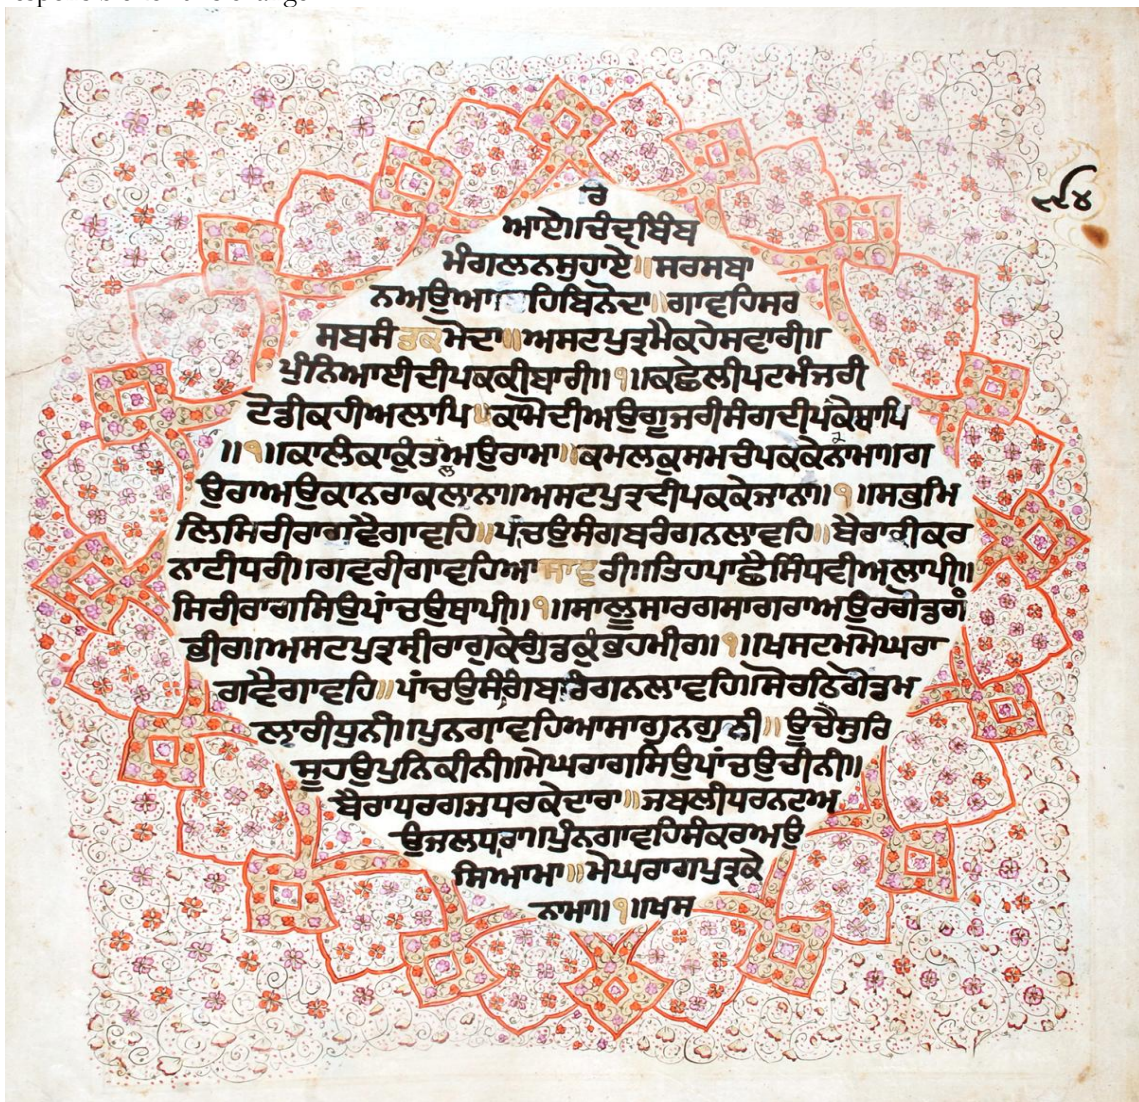 ਰੇ
ਆਏ॥ਚੰਦ੍ਰਬਿੰਬ
ਮੰਗਲਨਸੁਹਾਏ॥ਸਰਸਬਾ
ਨਅਉਆ ਹਿਬਿਨੋਦਾ॥ਗਾਵਹਿਸਰ
ਸਬਸੰਤਕਮੋਦਾ॥ਅਸਟਪੁਤ੍ਰਮੈਕਹੇਸਵਾਰੀ॥
ਪੁੰਨਿਆਈਦੀਪਕਕੀਬਾਰੀ॥੧॥ਕਛੇਲੀਪਟਮੰਜਰੀ
ਟੋਡੀਕਹੀਅਲਾਪਿ॥ਕਾਮੋਦੀਅਉਗੂਜਰੀਸੰਗਦੀਪਕੇਥਾਪਿ
॥੧॥ਕਾਲੰਕਾਕੁੰਤਲਅਉਰਾਮਾ॥ਕਮਲਕੁਸਮਚੰਪਕਕੇਨਾਮਾ॥ਗ
ਉਰਾਅਉਕਾਨਰਾਕਲਾਨਾ॥ਅਸਟਪੁਤ੍ਰਦੀਪਕਕੇਜਾਨਾ॥੧॥ਸਭਮਿ
ਲਿਸਿਰੀਰਾਗਵੈਗਾਵਹਿ॥ਪਾਂਚਉਸੰਗਬਰੰਗਨਲਾਵਹਿ॥ਬੈਰਾਰੀਕਰ
ਨਾਟੀਧਰੀ॥ਗਵਰੀਗਾਵਹਿਆਸਾਵਰੀ॥ਤਿਹਪਾਛੈਸਿੰਧਵੀਅਲਾਪੀ॥
ਸਿਰੀਰਾਗਸਿਉਪਾਂਚਉਥਾਪੀ॥੧॥ਸਾਲੂਸਾਰਗਸਾਗਰਾਅਉਰਗੋਡਗੰ
ਭੀਰ॥ਅਸਟਪੁਤ੍ਰਸ੍ਰੀਰਾਗਕੇਗੁੰਡਕੁੰਭਹਮੀਰ॥੧॥ਖਸਟਮਮੇਘਰਾ
ਗਵੈਗਾਵਹਿ॥ਪਾਂਚਉਸੰਗਿਬਰੰਗਨਲਾਵਹਿ॥ਸੋਰਠਿਗੋਡਮ
ਲਾਰੀਧੁਨੀ॥ਪੁਨਗਾਵਹਿਆਸਾਗੁਨਗੁਨੀ॥ਊਚੈਸੁਰਿ
ਸੂਹਉਪੁਨਿਕੀਨੀ॥ਮੇਘਰਾਗਸਿਉਪਾਂਚਉਚੀਨੀ॥
ਬੈਰਾਧਰਗਜਧਰਕੇਦਾਰਾ॥ਜਬਲੀਧਰਨਟਅ
ਉਜਲਧਾਰਾ॥ਪੁੰਨਗਾਵਹਿਸੰਕਰਅਉ
ਸਿਆਮਾ॥ਮੇਘਰਾਗਪੁਤ੍ਰਕੇ
ਨਾਮਾ॥੧॥ਖਸ